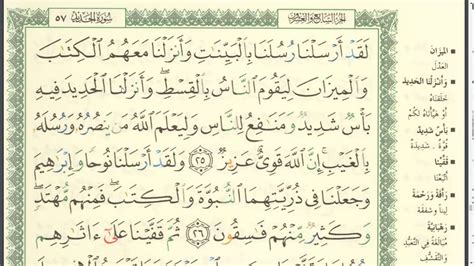 سورة الحديد ٥٧
الجزء السابع والعشرون
لَقَدْ أَرْسَلْنَا رُسُلَنَا بِٱلْبَيِّنَٰتِ وَأَنزَلْنَا مَعَهُمُ ٱلْكِتَٰبَ
وَٱلْمِيزَانَ لِيَقُومَ ٱلنَّاسُ بِٱلْقِسْطِ ۖ وَأَنزَلْنَا ٱلْحَدِيدَ فِيهِ
بَأْسٌ شَدِيدٌ وَمَنَٰفِعُ لِلنَّاسِ وَلِيَعْلَمَ ٱللَّهُ مَن يَنصُرُهُۥ وَرُسُلَهُۥ
بِٱلْغَيْبِ ۚ إِنَّ ٱللَّهَ قَوِىٌّ عَزِيزٌ ٢٥ وَلَقَدْ أَرْسَلْنَا نُوحًا وَإِبْرَٰهِيمَ
وَجَعَلْنَا فِى ذُرِّيَّتِهِمَا ٱلنُّبُوَّةَ وَٱلْكِتَٰبَ ۖ فَمِنْهُم مُّهْتَدٍ ۖ
وَكَثِيرٌ مِّنْهُمْ فَٰسِقُونَ ٢٦ ثُمَّ قَفَّيْنَا عَلَىٰٓ ءَاثَٰرِهِم
الميزان
العدل
وأنزلنا الحديد
خلقناه
أو هيأناه لكم
بأس شديد
قوة شديدة
قفينا
أتبعنا
رأفة ورحمة
لينا وشفقة
رهبانية
مبالغة في التعبد
والتقشف